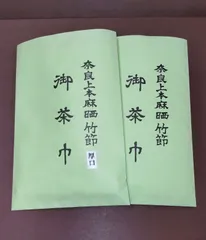 奈良上本麻晒竹節
御茶巾
厚口
奈良上本麻晒竹節
御茶巾